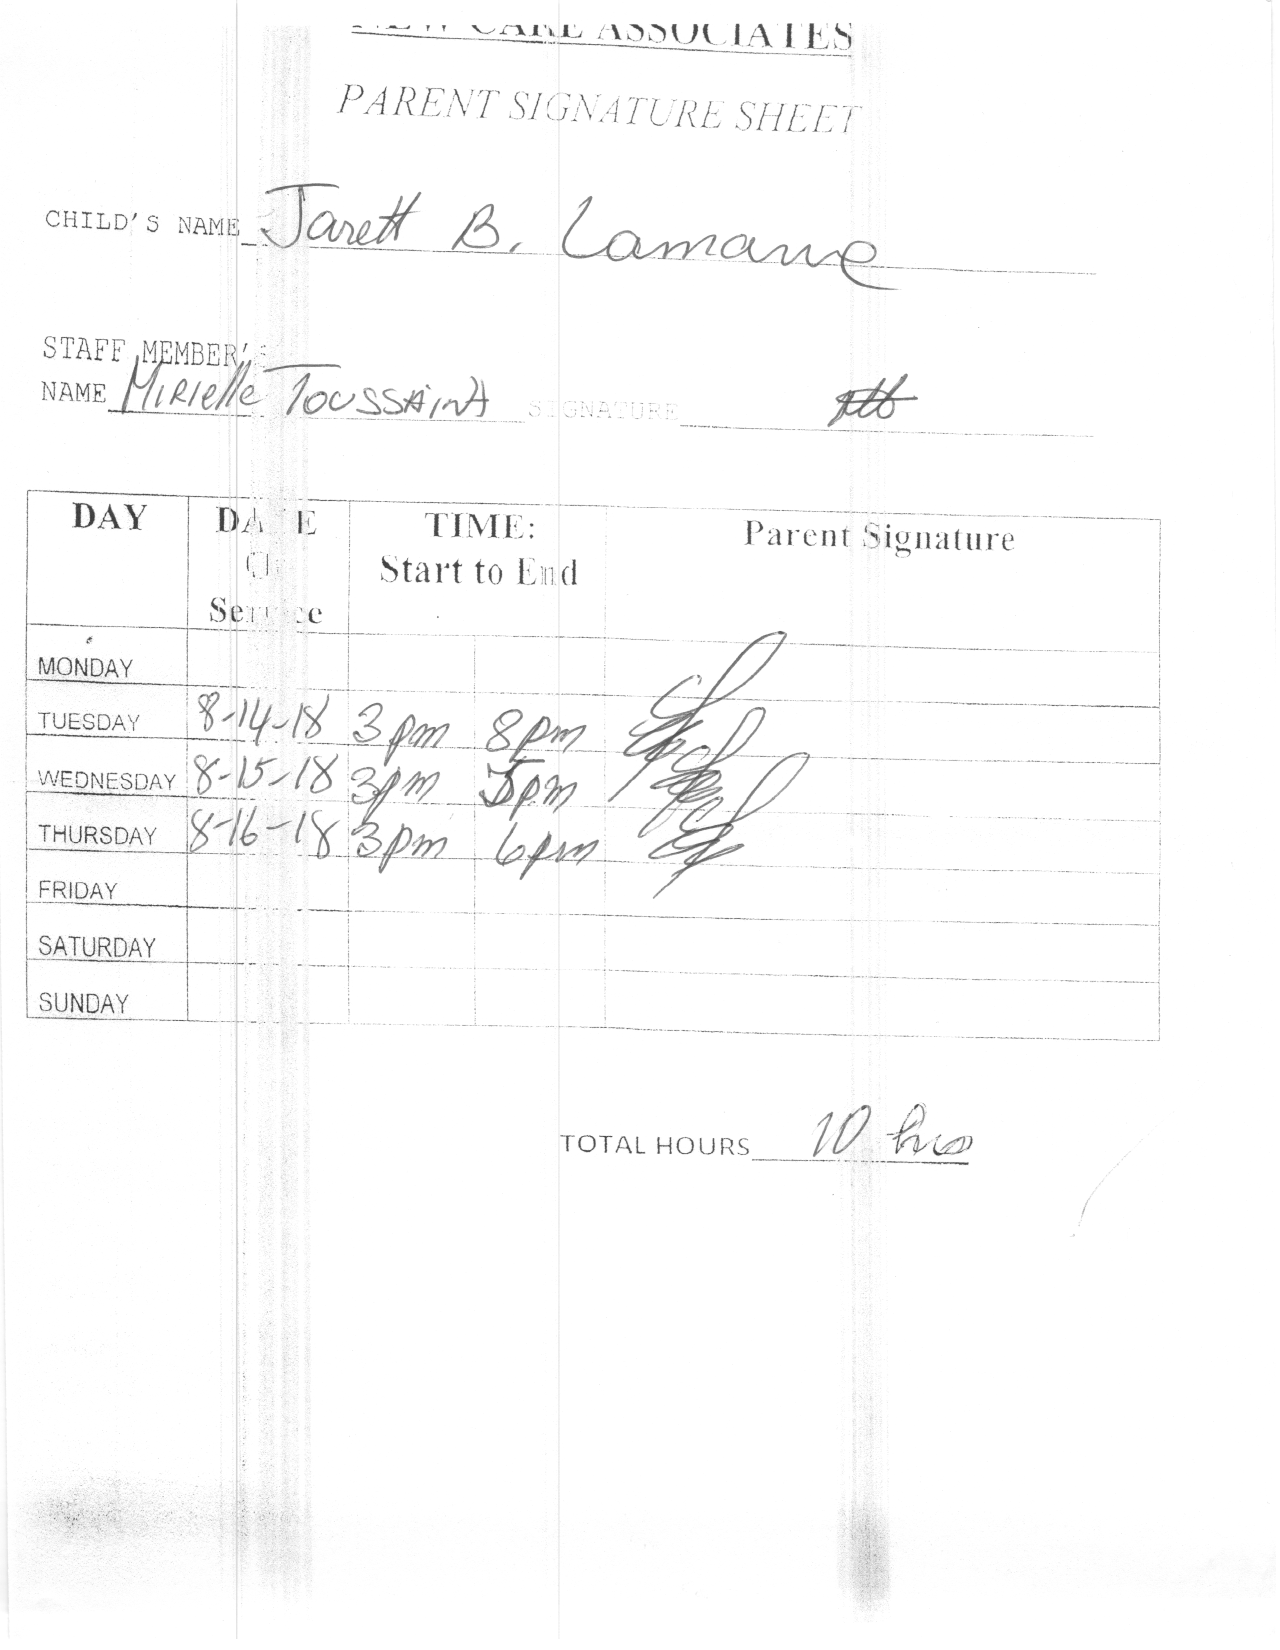 NEW CARE ASSOCIATES
PARENT SIGNATURE SHEET
CHILD'S NAME Jarett B. Lamarre
STAFF MEMBER'S
NAME Mirielle Toussaint SIGNATURE
DAY DATE Of Service TIME: Start to End Parent Signature
MONDAY
TUESDAY 8-14-18 3pm 8pm
WEDNESDAY 8-15-18 3pm 5pm
THURSDAY 8-16-18 3pm 6pm
FRIDAY
SATURDAY
SUNDAY
TOTAL HOURS 10 hrs